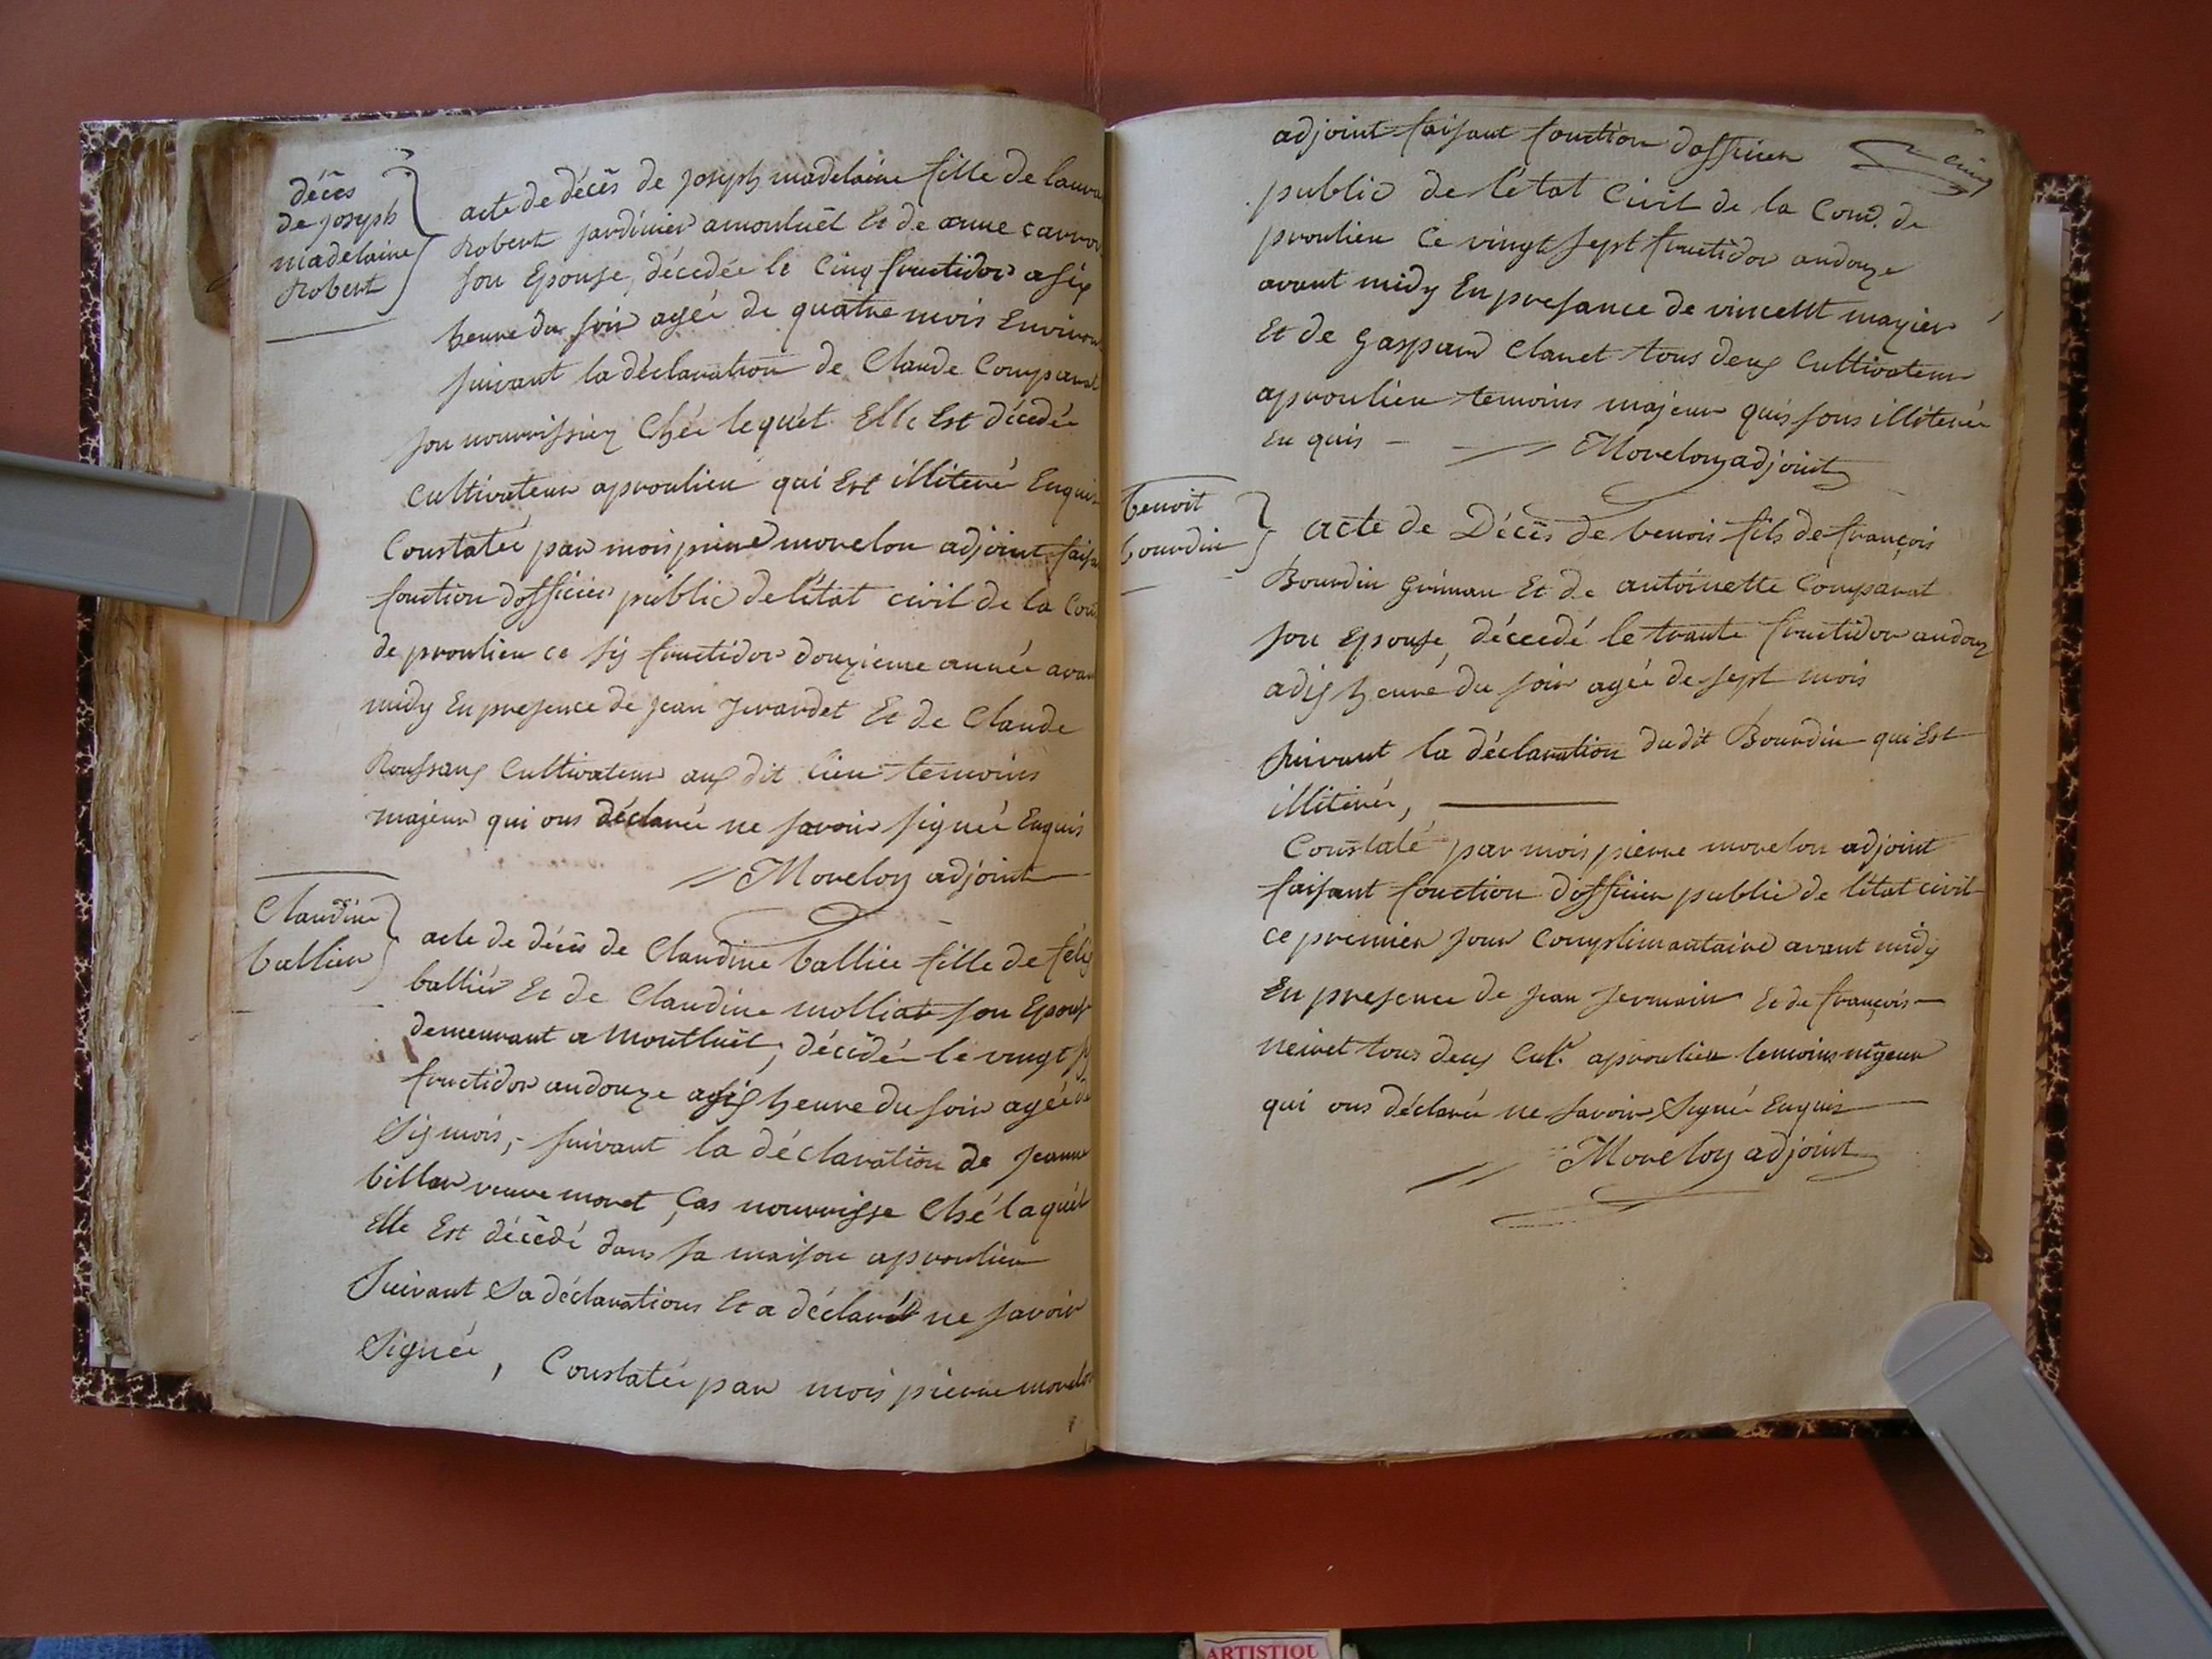 décès
de joseph
madelaine
Robert
acte de décès de joseph madelaine fille de laura
Robert jardinier amontluèl Et de anne carron
son Epouse, décedée le cinq fructidor a six
heure du soir agée de quatre mois Environ
suivant la déclaration de Claude Comparat
son nourrissier Chée lequèl Elle Est décedée
cultivateur aproulieu qui Est illiteré Enquis
Constatée par mois pierre morelon adjoint faisa
fonction dofficier public de l'état civil de la Com
de proulieu ce six fructidor douzieme année avan
midy En presence de jean Jerardet Et de Claude
Roussans Cultivateur aux dit lieu temoins
majeur qui ons déclaréé ne savoir signéé Enquis
Morelon adjoint
Claudine
ballier
acte de décès de Claudine ballier fille de félix
ballier Et de Claudine molliat son Epous
demeurant a Montluèl, décédée le vingt six
fructidor andouze a six heure du soir agée de
Six mois, suivant la déclaration de jeanne
billar veuve moret, Sas nourrisse Ché laquèl
Elle Est décédé dans sa maison aproulieu
Suivant Sa déclarations Et a déclaré ne savoir
Signéé, Constatée par mois pierre morelon
adjoint faisant fonction dofficier cinq
public de l'état Civil de la Com. de
proulieu Ce vingt sept fructidor andouze
avant midy En presance de vincent mazier
Et de Gaspard Claret tous deux Cultivateur
aproulieu temoins majeur quis sons illiteréé
En quis — Morelon adjoint
benoit
bourdin
acte de Décès de benois fils de françois
Bourdin Et de antoinette Comparat
son Epouse, déccedé le trante fructidor andouz
a dix heure du soir agée de sept mois
suivant la déclaration dudit Bourdin qui Est
illiteréé,
Constaté par mois pierre morelon adjoint
faisant fonction dofficier public de l'état civil
ce premier jour Complimantaire avant midy
En presence de jean Jermain Et de françois
neivet tous deux Cult.r aproulieu temoins mageur
qui ons déclaréé ne savoir Signéé Enquis
Morelon adjoint
ARTISTIQU